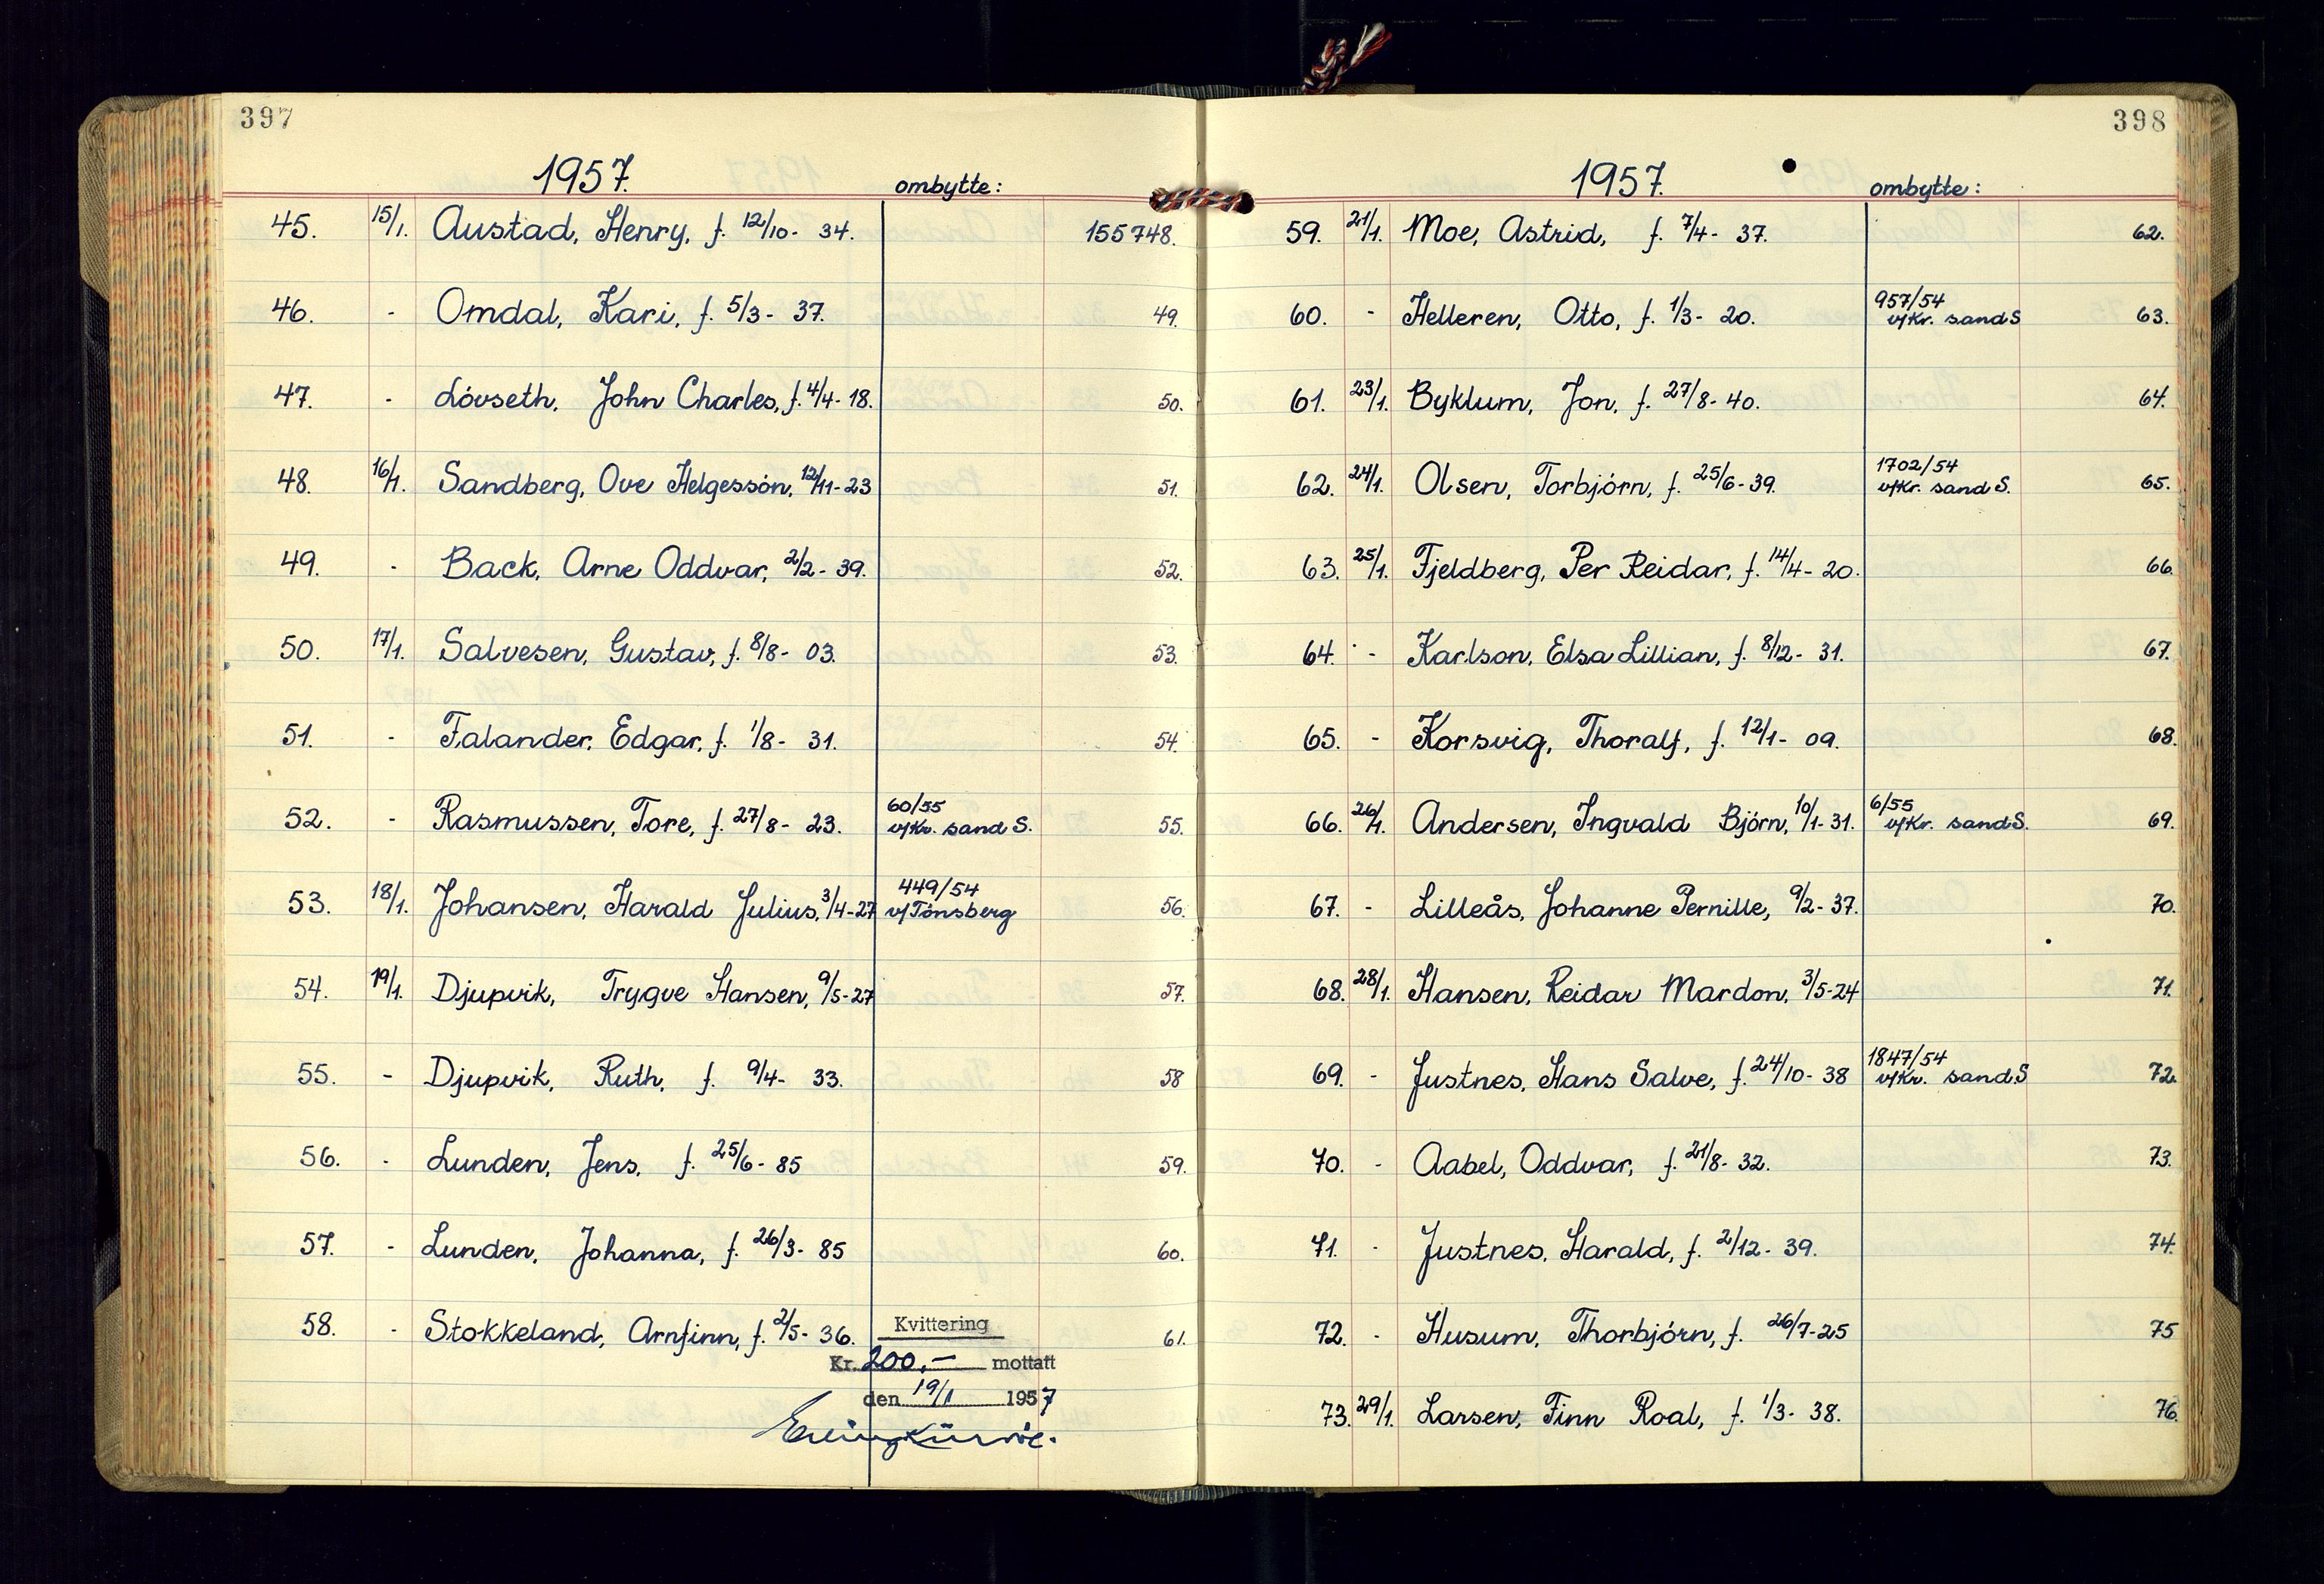 397
1957. ombytte:
45. 15/1. Austad, Henry, f. 12/10- 34. 155748.
46. - Omdal, Kari, f. 5/3- 37. 49.
47. - Lóvseth, John Charles, f. 4/4- 18. 50.
48. 16/1. Sandberg, Ove Helgessón, 12/11-23 51.
49. - Back, Arne Oddvar, 2/2- 39. 52.
50. 17/1. Salvesen, Gustav, f. 8/8- 03. 53.
51. - Falander, Edgar, f. 1/8- 31. 54.
60/55
52. - Rasmussen, Tore, f. 27/8- 23. v/Kr. sand S. 55.
449/54
53. 18/1. Johansen, Harald Julius, 3/4-27 v/Tónsberg 56.
54. 19/1. Djupvik, Trygve Hansen, 9/5-27 57.
55. - Djupvik, Ruth, f. 9/4- 33. 58
56. - Lunden, Jens, f. 25/6- 85 59.
57. - Lunden, Johanna, f. 26/3- 85 60.
58. - Stokkeland, Arnfinn, f. 2/5- 36. 61.
Kvittering
Kr. 200,- mottatt
den 19/1 1957
398
1957. ombytte:
59. 21/1. Moe, Astrid, f. 7/4- 37. 62.
957/54
60. - Helleren, Otto, f. 1/3- 20. v/Kr. sand S 63.
61. 23/1. Byklum, Jon, f. 27/8- 40. 64.
1702/54
62. 24/1. Olsen, Torbjórn, f. 25/6-39. v/Kr. sand S. 65.
63. 25/1. Fjeldberg, Per Reidar, f. 14/4- 20. 66.
64. - Karlson, Elsa Lillian, f. 8/12- 31. 67.
65. - Korsvig, Thoralf, f. 12/1- 09. 68.
6/55
66. 26/1. Andersen, Ingvald Bjórn, 10/1-31. v/Kr. sand S. 69.
67. - Lilleås, Johanne Pernille, 9/2-37. 70.
68. 28/1. Hansen, Reidar Mardon, 3/5-24 71.
1847/54
69. - Justnes, Hans Salve, f. 24/10-38 v/Kr. sand S 72.
70. - Aabel, Oddvar, f. 21/8- 32. 73.
71. - Justnes, Harald, f. 2/12- 39. 74.
72. - Husum, Thorbjórn, f. 26/7-25 75
73. 29/1. Larsen, Finn Roal, f. 1/3- 38. 76.